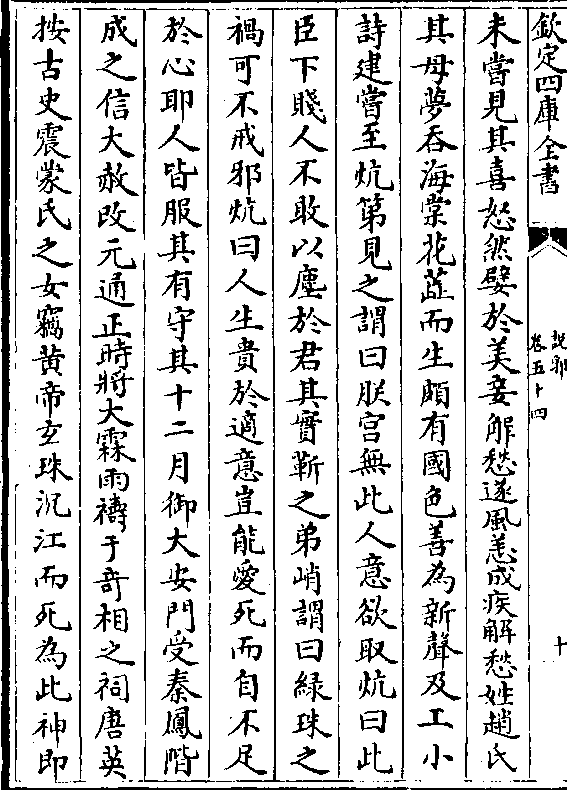 欽定四庫全書
說郛
卷五十四
十
未嘗見其喜怒然嬖於美妾解愁遂風恙成疾解愁姓趙氏
其母夢吞海棠花蕋而生頗有國色善為新聲及工小
詩建嘗至炕第見之謂曰朕宫無此人意欲取炕曰此
臣下賤人不敢以塵於君其實靳之弟峭謂曰緑珠之
禍可不戒邪炕曰人生貴於適意豈能愛死而自不足
於心耶人皆服其有守其十二月御大安門受秦鳳階
成之信大赦改元通正時將大霖雨禱于奇相之祠唐英
按古史震蒙氏之女竊黄帝玄珠沉江而死為此神即